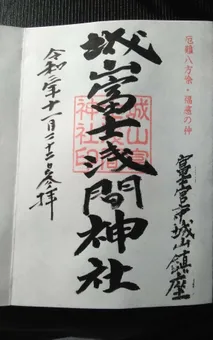 厄難八方除・福恵の神
富士宮市城山鎮座
城山富士浅間神社
令和二年十一月二十二日参拝
城山富
士浅間
神社印